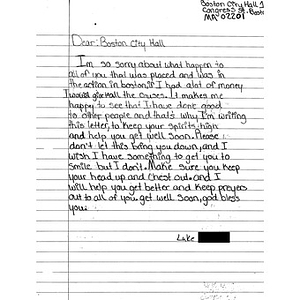 Boston City Hall 1
Congress St. Bost
MA 02201
Dear: Boston City Hall
I'm so sorry about what happen to
all of you that was placed and was in
the action in boston, if I had alot of money
I would give all the causes. It makes me
happy to see that I have done good
to other people and that's why I'm writing
this letter, to keep your spirits high
and help you get well soon. Please
don't let this bring you down, and I
wish I have something to get you to
smile but I don't. Make sure you keep
your head up and chest out. and I
will help you get better and keep prayers
out to all of you. get well soon, god bless
you.
Luke